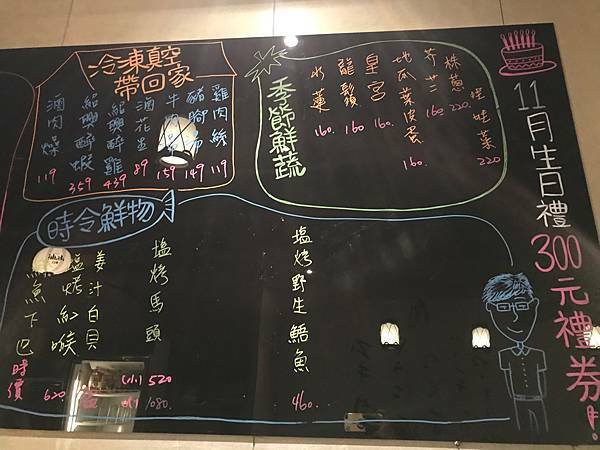 冷凍真空
帶回家
雞肉絲 119
豬腳 149
牛 159
滷花生 89
紹興醉雞 439
紹興醉蝦 359
滷肉燥 119
季節鮮蔬
珠蔥 220.
娃娃菜 220
芥蘭 160
地瓜葉皮蛋 160.
皇宮 160.
龍鬚 160
水蓮 160.
11月生日禮
300元禮券!
時令鮮物
塩烤野生鰡魚 460.
塩烤馬頭 (小) 520 1080.
姜汁白貝
塩烤紅喉 620
魚下巴 時價